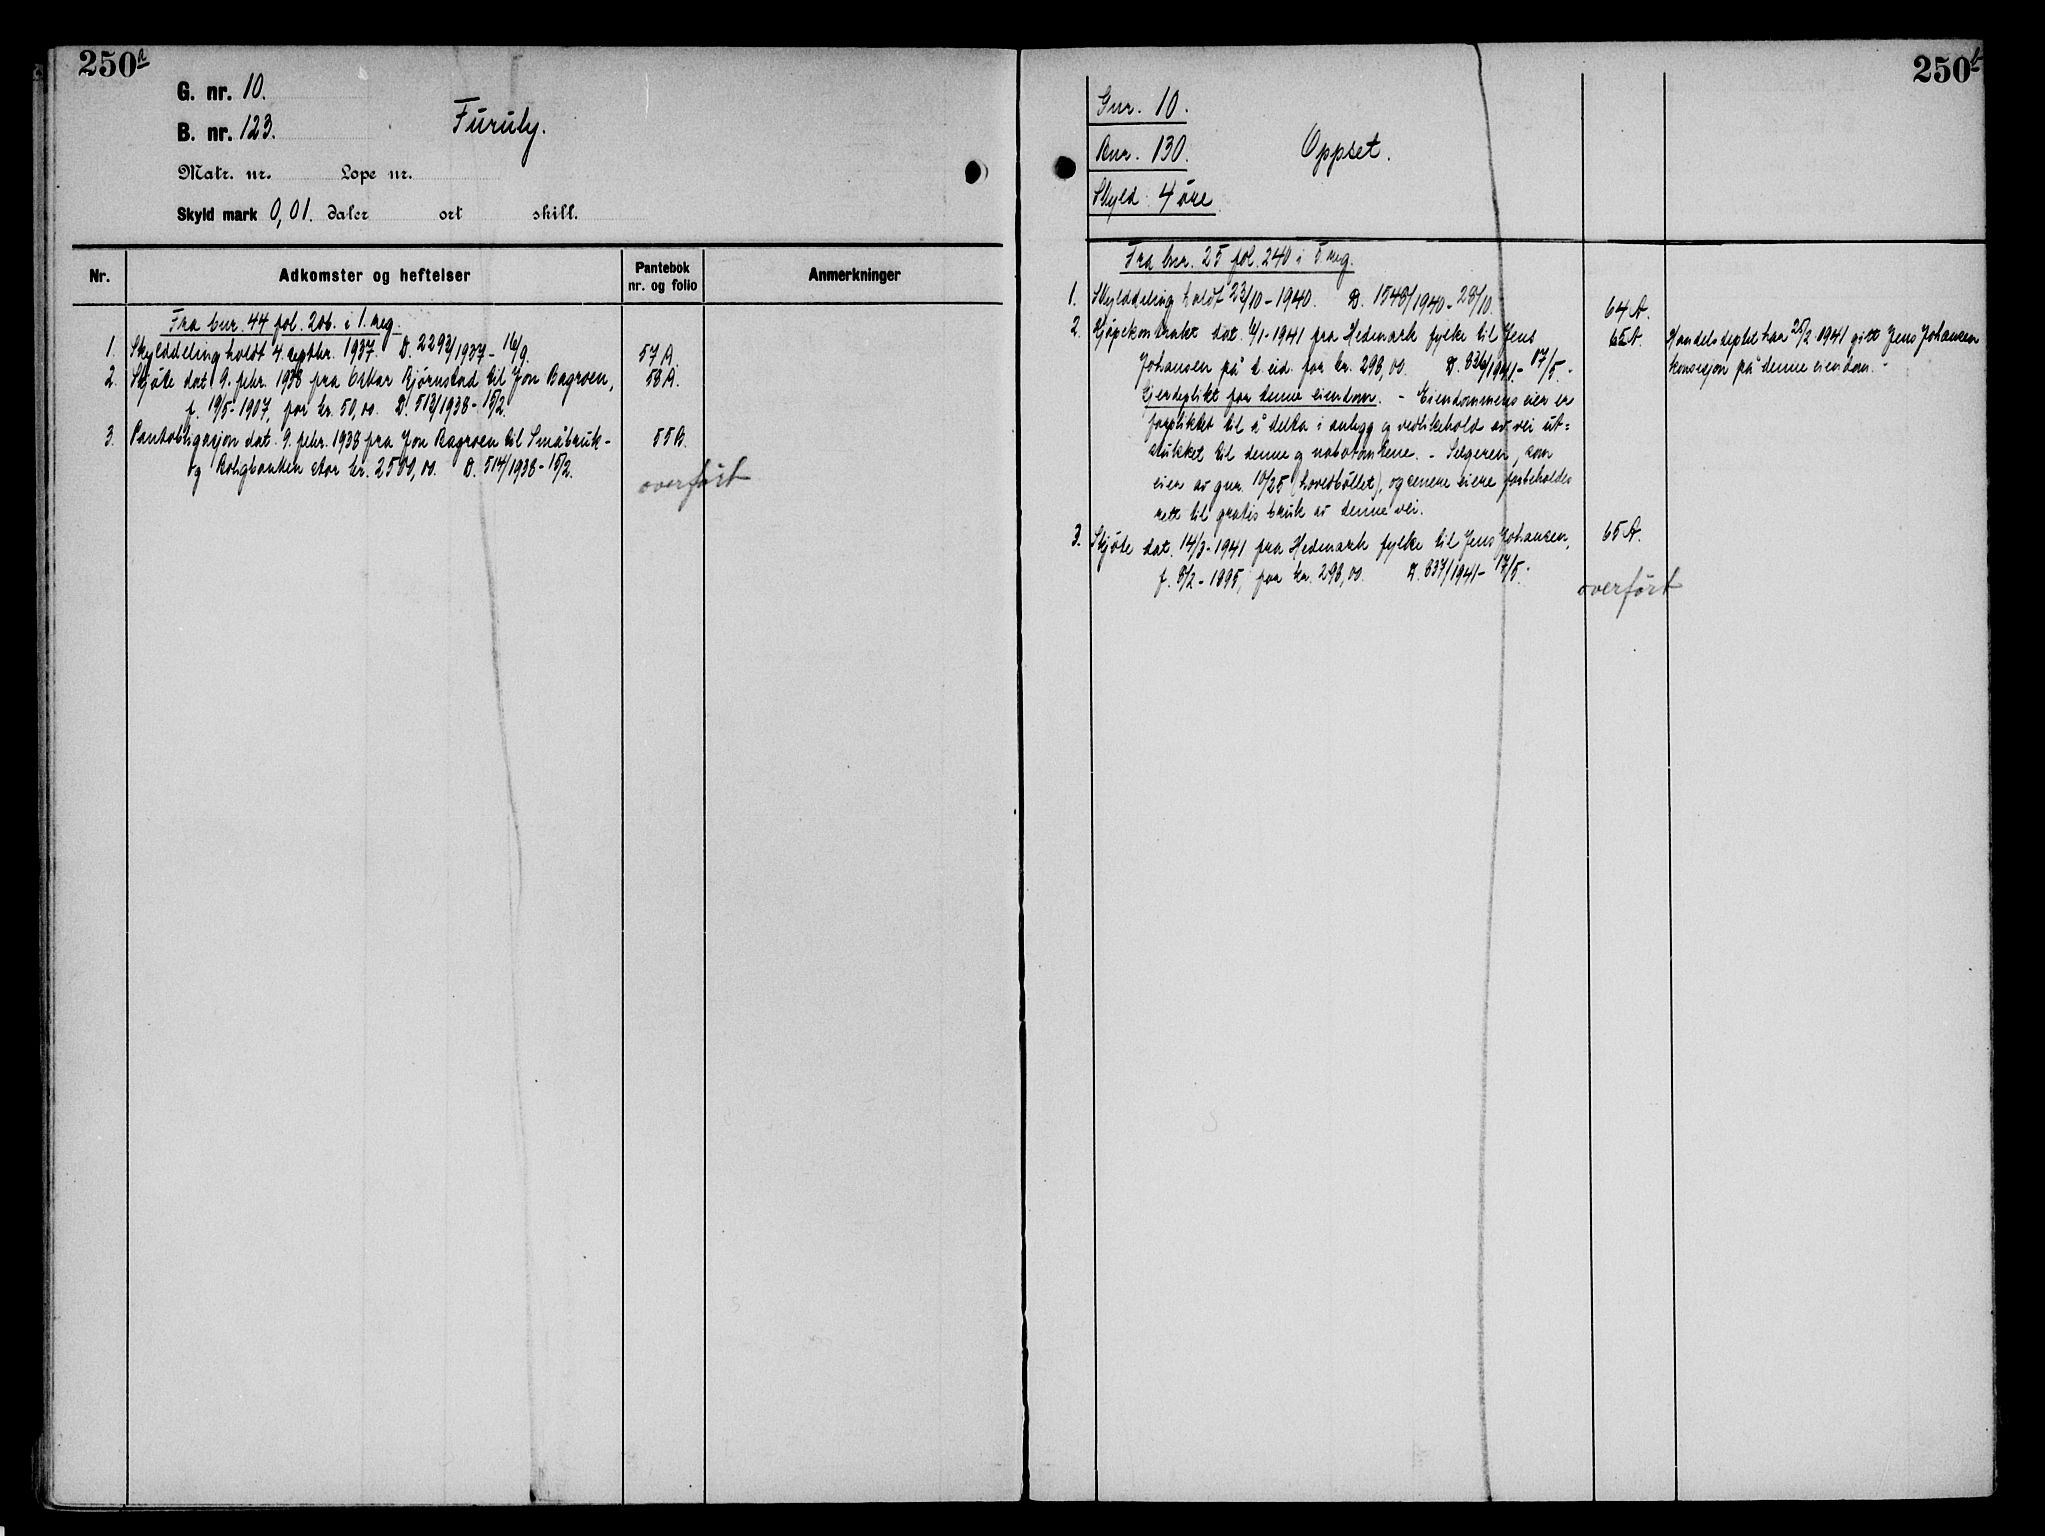 250a
G. nr. 10.
B. nr. 123.
Furuly.
Matr. nr. Lope nr.
Skyld mark 0,01. daler ort skill.
Nr. Adkomster og heftelser Pantebok nr. og folio Anmerkninger
Fra bnr. 44 fol. 206. i 1. reg.
1. Skylddeling holdt 4. septbr. 1937. D. 2292/1937 - 16/9. 57 A.
2. Skjøte dat. 9. febr. 1938 fra Oskar Bjørnstad til Jon Bagroen, 58 A.
f. 19/5-1907, for kr. 50,00. D. 513/1938 - 15/2.
3. Pantobligasjon dat. 9. febr. 1938 fra Jon Bagroen til Småbruk- 55 B.
og Boligbanken stor kr. 2500,00. D. 514/1938 - 15/2.
overført
250b
Gnr. 10.
Bnr. 130.
Oppset.
Skyld 4 øre
Fra bnr. 25 fol. 240 i 5 reg.
1. Skylddeling holdt 23/10 - 1940. D. 1548/1940 - 28/10. 64 A.
2. Kjøpekontrakt dat. 6/1-1941 fra Hedmark fylke til Jens 65 A. Handelsdeptet har 25/2 1941 gitt Jens Johansen
Johansen på d. eid. for kr. 298,00. D. 836/1941 - 17/5. - konsesjon på denne eiendom. -
Gjerdeplikt for denne eiendom. - Eiendommens eier er
forpliktet til å delta i anlegg og vedlikehold av vei ut=
stukket til denne og nabotomtene. - Selgeren, som
eier av gnr. 10/25 (hovedbøllet), og senere eiere forbeholdes
rett til gratis bruk av denne vei.
3. Skjøte dat. 14/3-1941 fra Hedmark fylke til Jens Johansen, 65 A.
f. 8/2 - 1895, for kr. 298,00. D. 837/1941 - 17/5.
overført